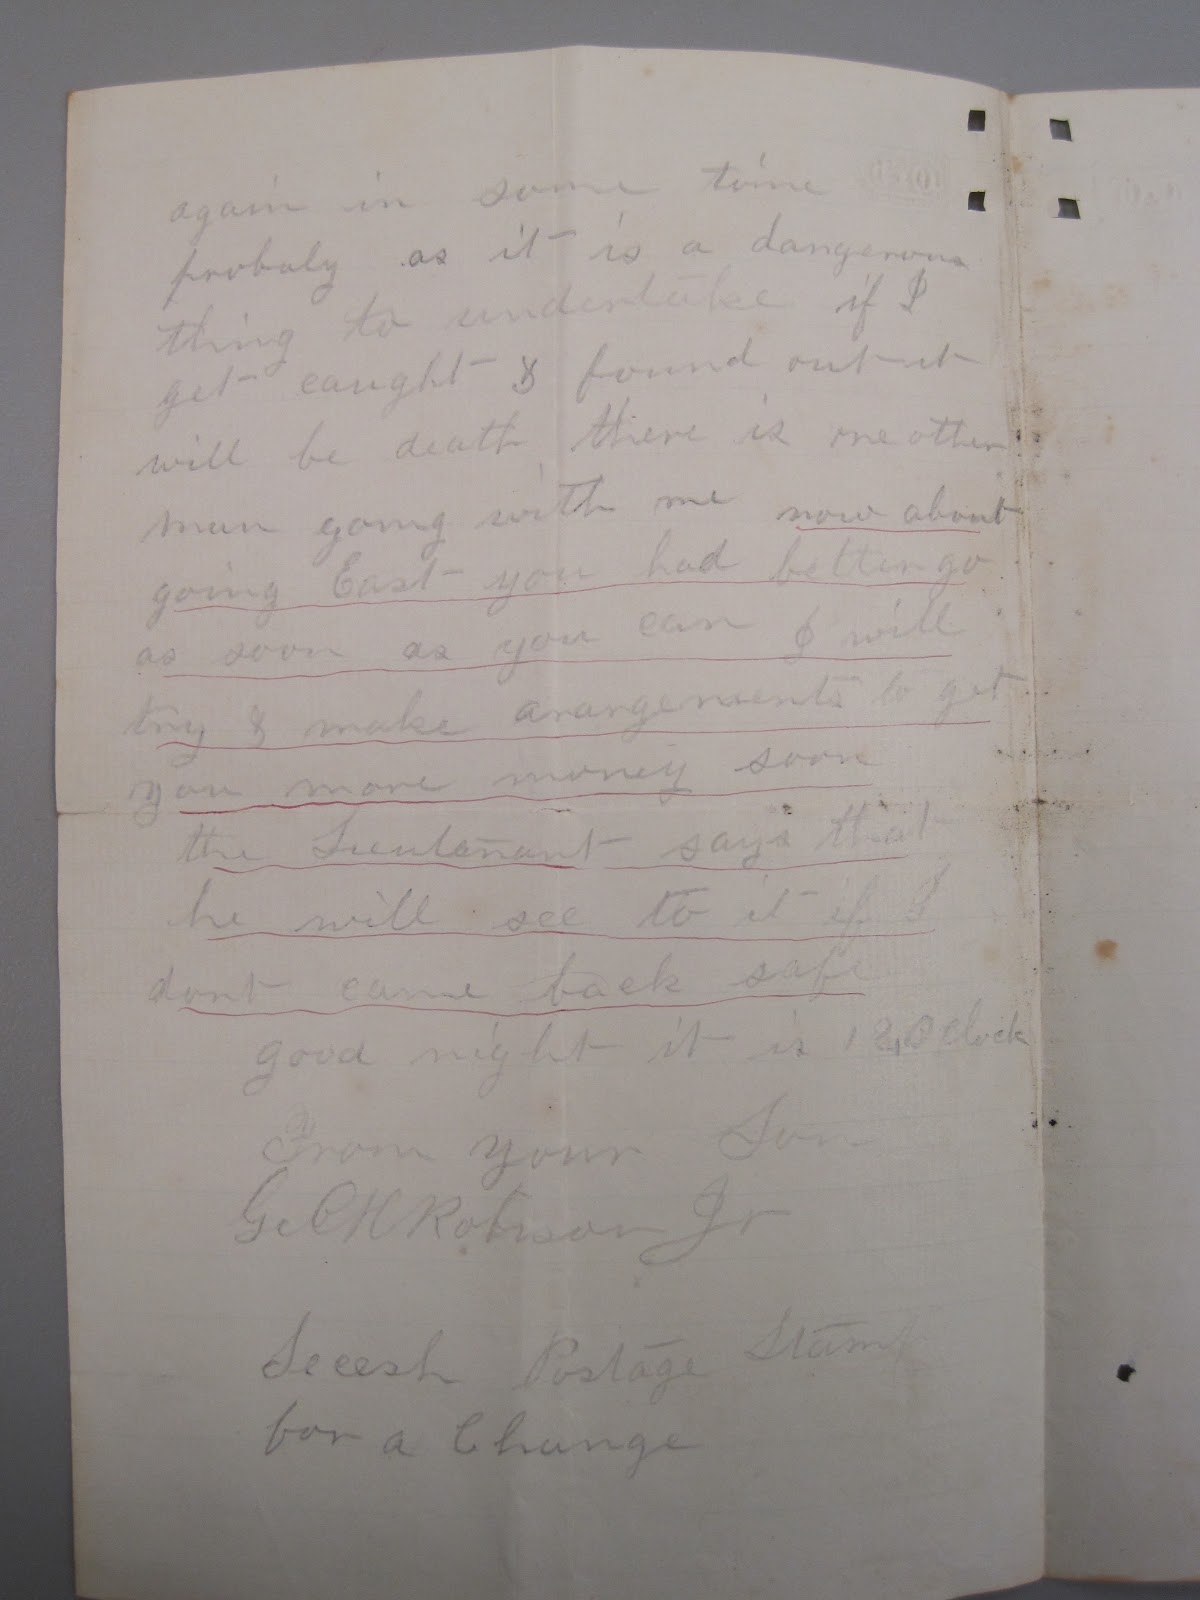 again in some time
probaly as it is a dangerous
thing to undertake if I
get caught & found out it
will be death there is one other
man going with me now about
going East you had better go
as soon as you can I will
try & make arangements to get
you more money soon
the Lieutenant says that
he will see to it if I
dont came back safe
good night it is 12 Oclock
From your Son
Ge C H Robison Jr
Secesh Postage Stamp
for a Change